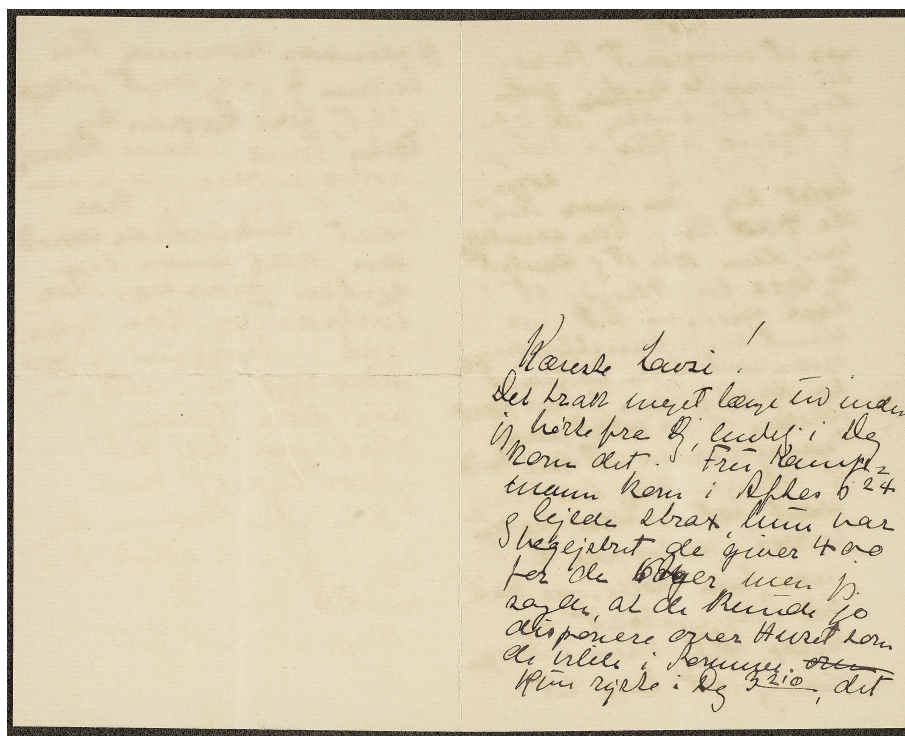 Kæreste Lausi!
Det trak meget længe ud inden
jeg hørte fra Dig, endelig i Dag
kom det. Fru Kamp=
mann kom i Aftes 6 24
og lejede strax, hun var
begejstret de giver 400
for de Dage, men jeg
sagde, at de kunde jo
disponere over Huset som
de vilde i Sommer.
Hun rejste i Dag 3 210, det